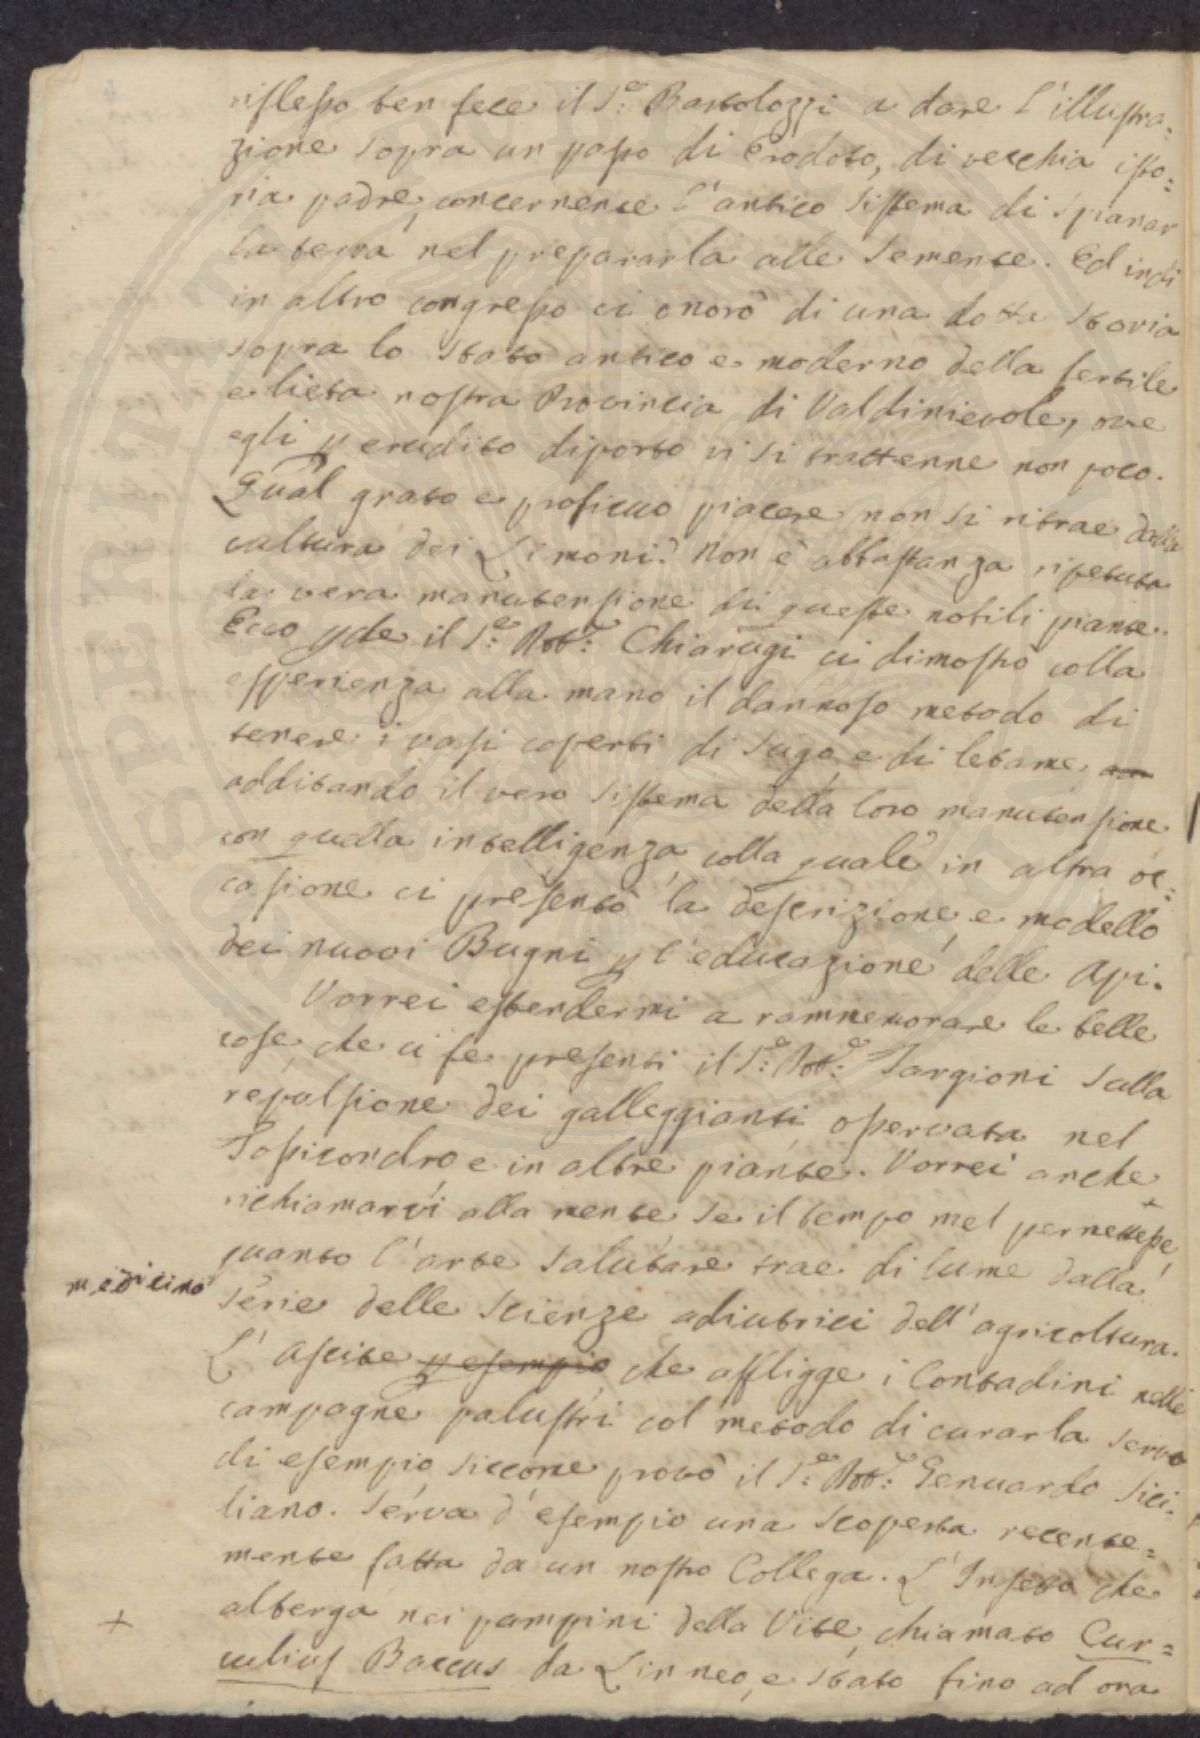 riflesso ben fece il S.e Bartolozzi a dare l'illustra=
zione sopra un passo di Erodoto, di vecchia isto=
ria padre, concernente l'antico sistema di spianar
la terra nel prepararla alle semente. Ed indi
in altro congresso ci onorò di una dotta storia
sopra lo stato antico e moderno della fertile
e lieta nostra Provincia di Valdinievole, ove
egli p erudito diporto vi si trattenne non poco.
Qual grato e proficuo piacere non si ritrae dalla
cultura dei Limoni? Non è abbastanza ripetuta
la vera manutensione di queste nobili piante.
Ecco pche il S.e Dott.e Chiarugi ci dimostrò colla
esperienza alla mano il dannoso metodo di
tenere i vasi coperti di sugo e di letame,
additando il vero sistema della loro manutensione
con quella intelligenza, colla quale in altra oc=
casione ci presentò la descrizione e modello
dei nuovi Bugni p l'educazione delle Api.
Vorrei estendermi a rammemorare le belle
cose, che ci fe presenti il S.e Dott.e Targioni sulla
repulsione dei galleggianti osservata nel
Tossicondro e in altre piante. Vorrei anche
richiamarvi alla mente se il tempo mel permettesse, +
quanto l'arte salutare trae di lume dalla
medicina
serie delle scienze adiutrici dell'agricoltura.
L'Ascite p esempio che affligge i Contadini nelle
campagne palustri col metodo di curarla serva
di esempio siccome provò il S.e Dott.e Genuardo Sici=
liano. Serva d'esempio una scoperta recente=
mente fatta da un nostro Collega. L'Insetto che
+
alberga nei pampini della Vite, chiamato Cur=
culius Baccus da Linneo, è stato fino ad ora